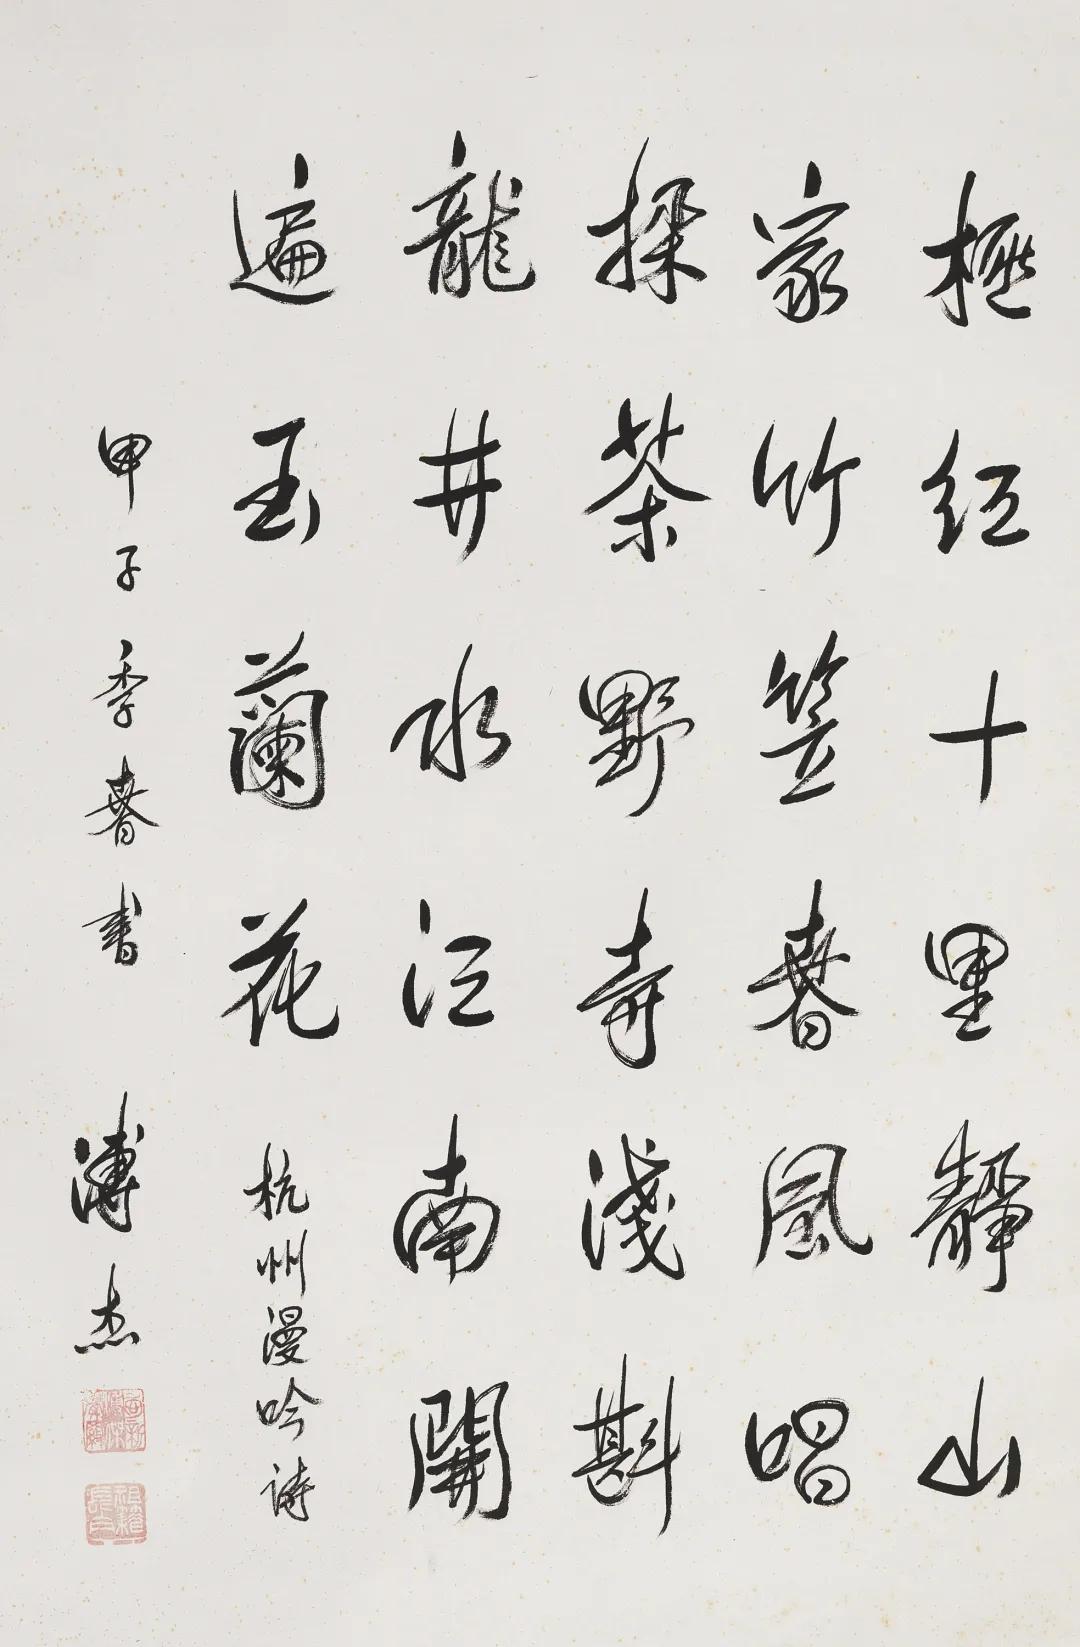 極紅十里靜山
家竹笠春風唱
採茶野寺淺斟
龍井水江南開
遍玉蘭花
杭州漫吟詩
甲子季春書
溥杰